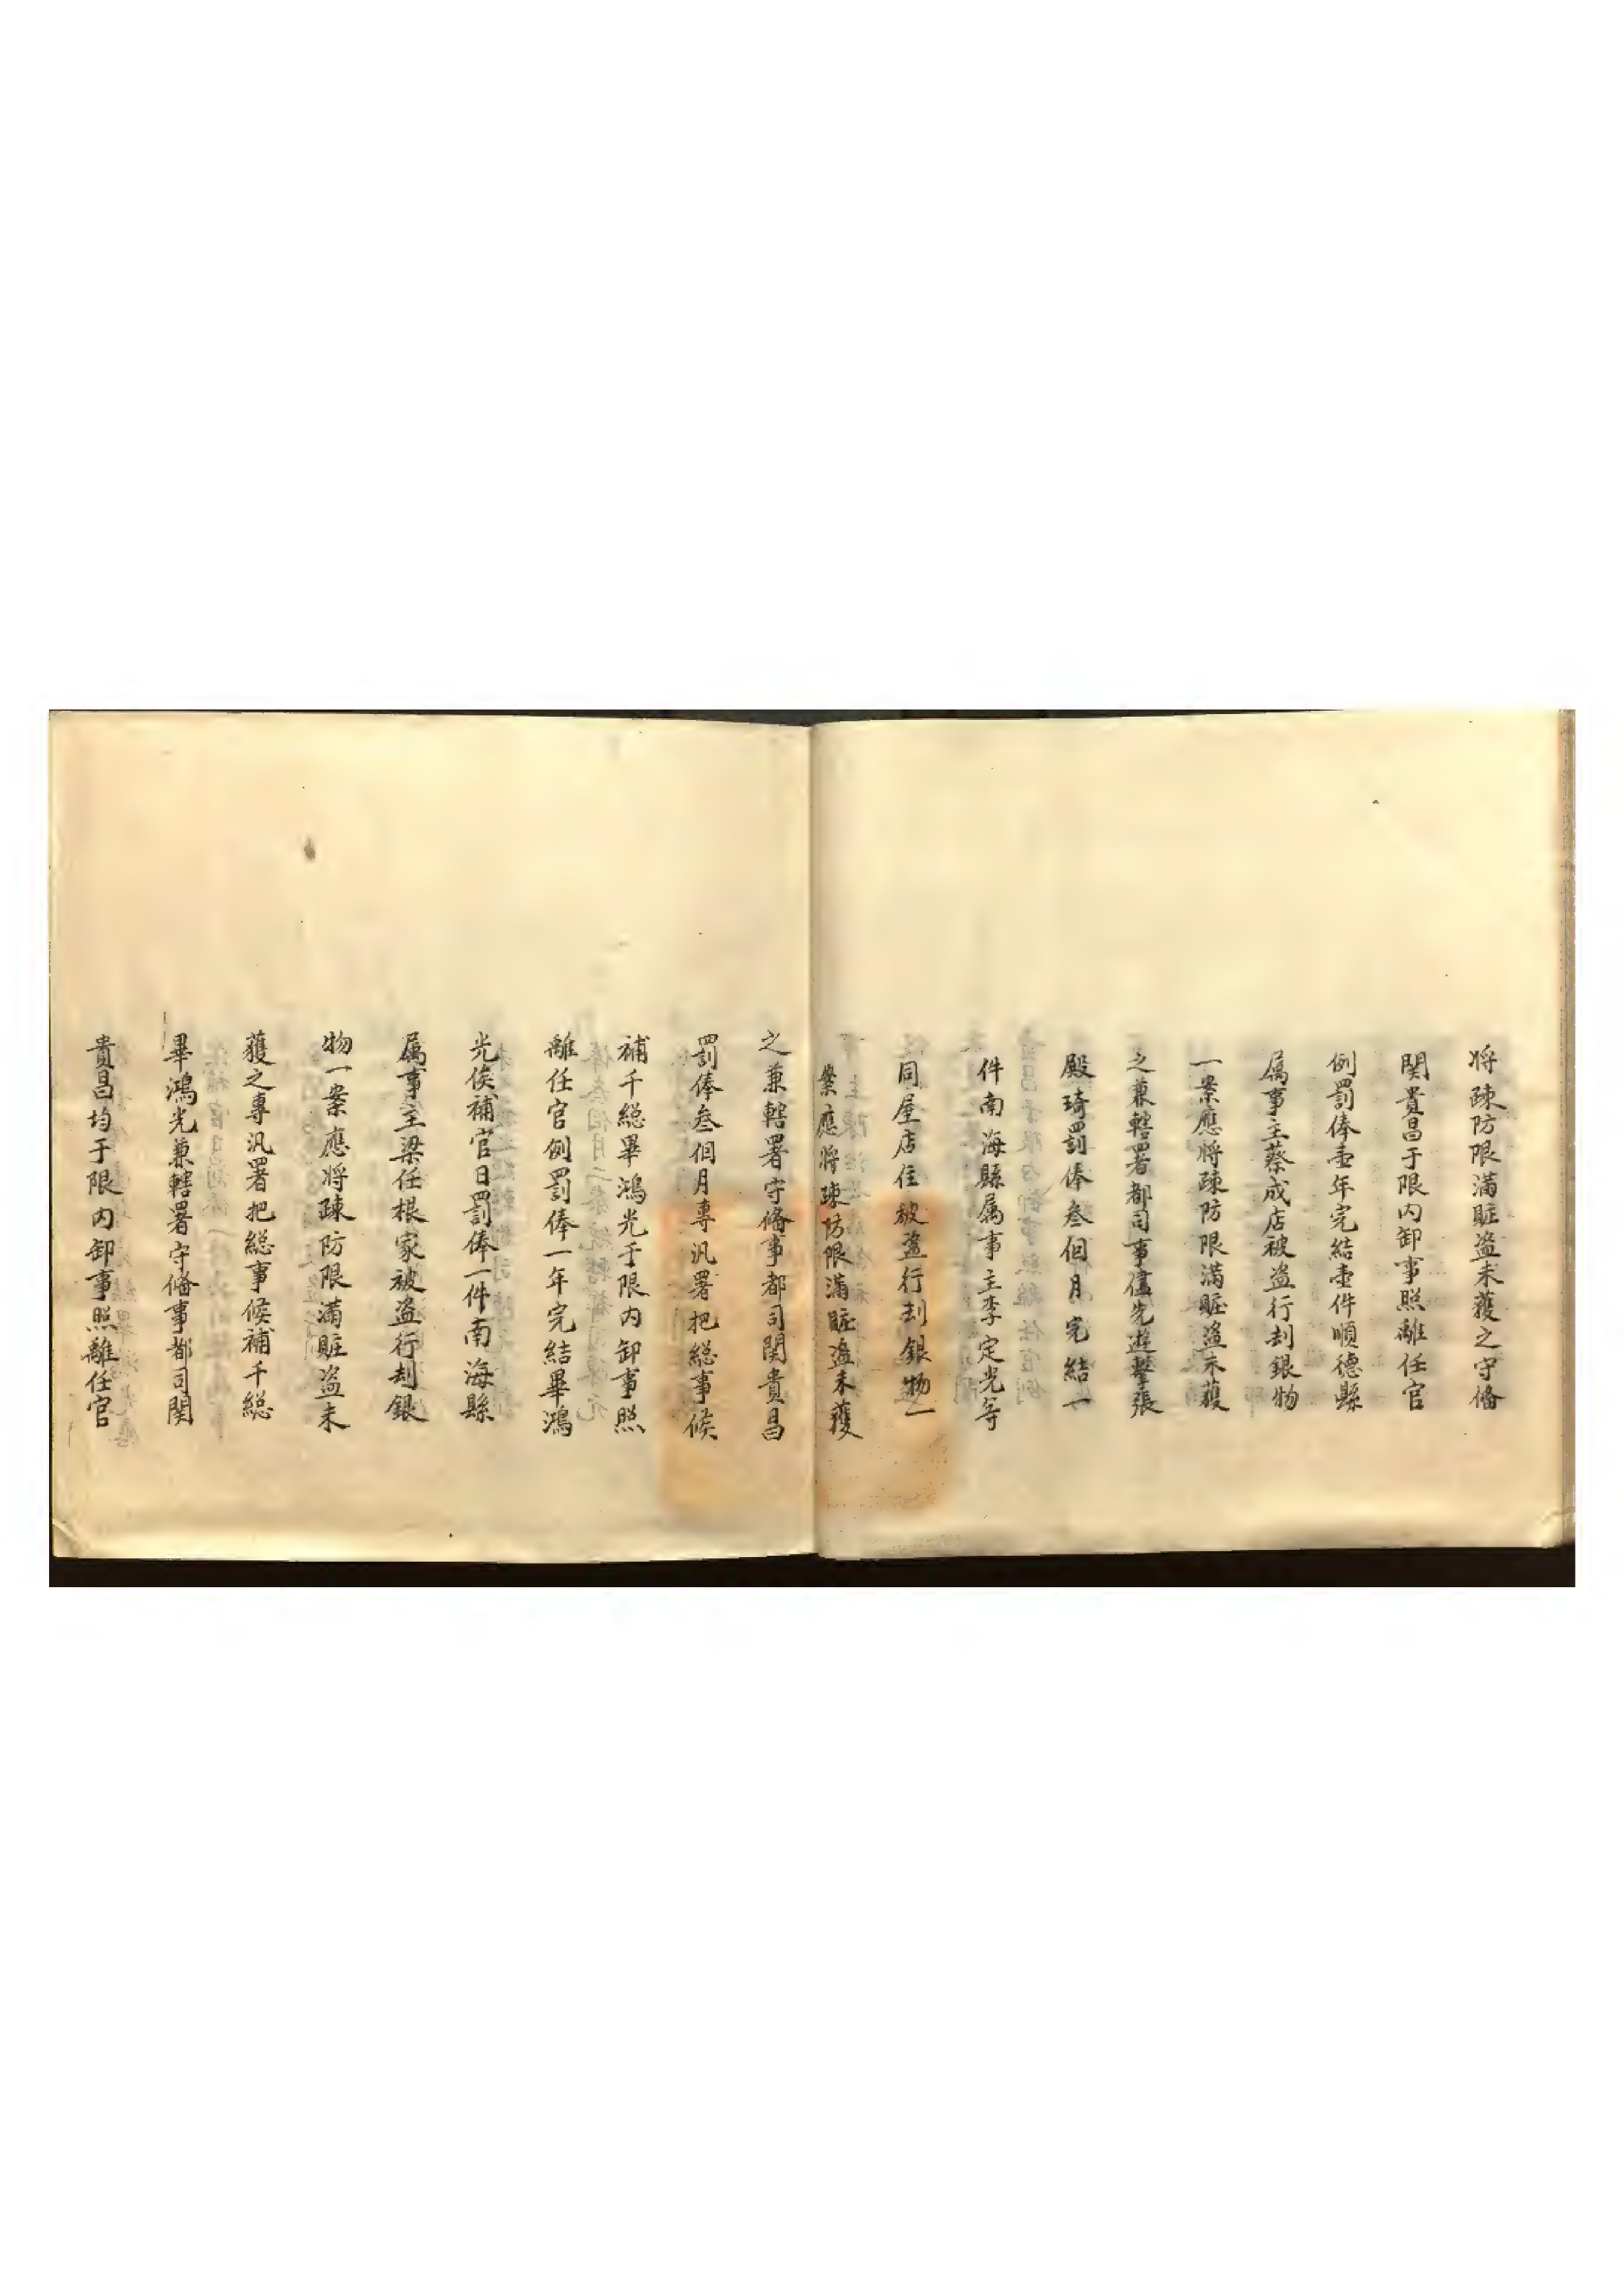 将疎防限滿賍盗未獲之守俻
関貴昌于限内卸事照離任官
例罰俸壹年完結壹件順德縣
属事主蔡成店被盗行刦銀物
一案應將疎防限滿賍盗未獲
之兼轄署都司事儘先遊擊張
殿琦罰俸叁個月完結一
件南海縣属事主李定光等
同屋店住被盗行刦銀物一
案應將疎防限滿賍盗未獲
之兼轄署守俻事都司関貴昌
罰俸叁個月專汛署把総事候
補千総畢鴻光于限内卸事照
離任官例罰俸一年完結畢鴻
光俟補官日罰俸一件南海縣
属事主梁任根家被盗行刦銀
物一案應將疎防限滿賍盗未
獲之專汛署把総事候補千総
畢鴻光兼轄署守俻事都司関
貴昌均于限内卸事照離任官